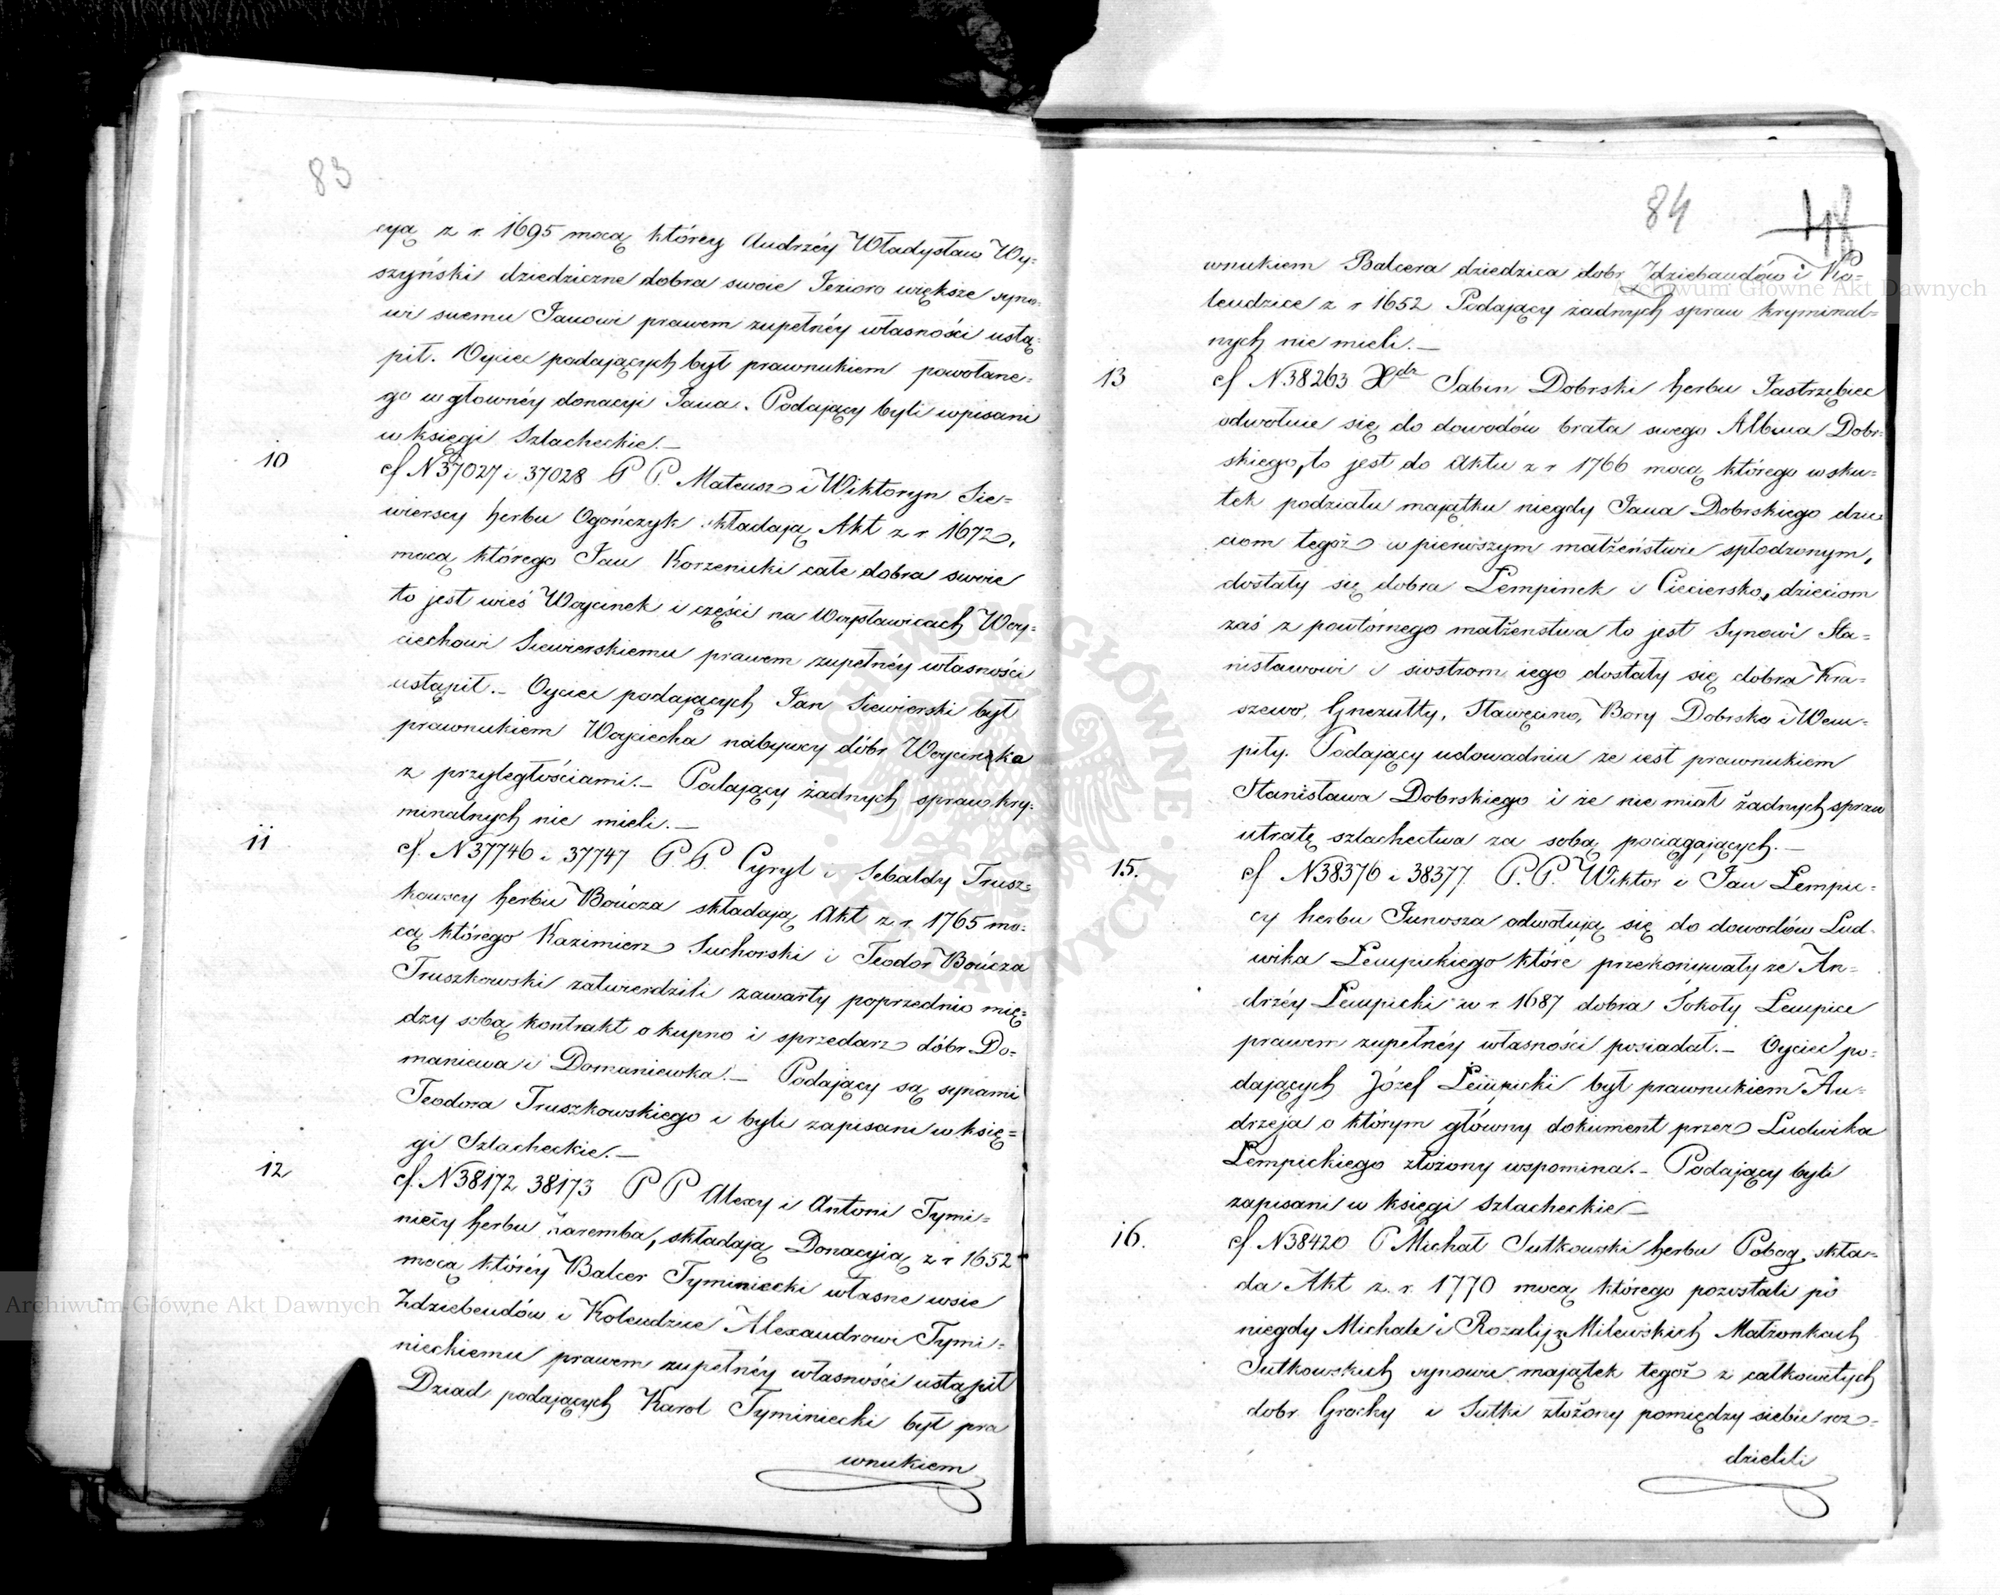 83
cyą z r. 1695 mocą któréy Andrzéy Władysław Wy-
szyński dziedziczne dobra swoie Jezioro większe syno-
wi swemu Janowi prawem zupełnéy własności ustą-
pił. Oyciec podających był prawnukiem powołane-
go w głównéy donacyi Jana. Podający byli wpisani
w księgi Szlacheckie.—
10 cf N 37027 i 37028 P P. Mateusz i Wiktoryn Sie-
wierscy herbu Ogończyk składają Akt z r. 1672,
mocą którego Jan Korzenicki całe dobra swoie
to jest wieś Woycinek i części na Woysławicach Woy-
ciechowi Siewierskiemu prawem zupełnéy własności
ustąpił.— Oyciec podających Jan Siewierski był
prawnukiem Woyciecha nabywcy dóbr Woycinka
z przyległościami.— Podający żadnych spraw kry-
minalnych nie mieli.—
11 cf. N 37746 i 37747 P. P. Cyryl i Sebaldy Trusz-
kowscy herbu Bończa składają Akt z r. 1765 mo-
cą którego Kazimierz Suchorski i Teodor Bończa
Truszkowski zatwierdzili zawarty poprzednio mię-
dzy sobą kontrakt o kupno i sprzedarz dóbr Do-
maniewa i Domaniewka.— Podający są synami
Teodora Truszkowskiego i byli zapisani w księ-
gi Szlacheckie.—
12 cf. N 38172 38173 P P Alexy i Antoni Tymi-
nieccy herbu Zaremba, składają Donacyią z r 1652
mocą któréy Balcer Tyminiecki własne wsie
Zdziebendów i Kolendzice Alexandrowi Tymi-
nieckiemu prawem zupełnéy własności ustąpił
Dziad podających Karol Tyminiecki był pra
wnukiem
84
wnukiem Balcera dziedzica dobr Zdziebandów i Ko-
lendzice z r 1652 Podający żadnych spraw kryminal-
nych nie mieli.—
13 cf N 38263 Xdz Sabin Dobrski herbu Jastrzębiec
odwołuie się do dowodów brata swego Albina Dobr-
skiego, to jest do Aktu z r 1766 mocą którego w sku-
tek podziału majątku niegdy Jana Dobrskiego dzie
ciom tegoż w pierwszym małżeństwie spłodzonym,
dostały się dobra Lempinek i Cieciersko, dzieciom
zaś z powtórnego małżeństwa to jest Synowi Sta-
nisławowi i siostrom iego dostały się dobra Kra-
szewo, Gnezułty, Sławęcino, Bory Dobrsko i Wem-
piły. Podający udowadnia że iest prawnukiem
Stanisława Dobrskiego i że nie miał żadnych spraw
utratę szlachectwa za sobą pociągających.—
15. cf N 38376 i 38377 P. P. Wiktor i Jan Lempic-
cy herbu Junosza odwołują się do dowodów Lud-
wika Lempickiego któré przekonywały że An-
drzéy Lempicki w r. 1687 dobra Sokoły Lempice
prawem zupełnéy własności posiadał.— Oyciec po-
dających Józef Lempicki był prawnukiem An-
drzeja o którym główny dokument przez Ludwika
Lempickiego złożony wspomina.— Podający byli
zapisani w księgi Szlacheckie—
16. cf N 38420 P Michał Sutkowski herbu Pobog, skła-
da Akt z. r. 1770 mocą którego pozostali po
niegdy Michale i Rozalij z Milewskich Małżonkach
Sutkowskich synowie majątek tegoż z całkowitych
dobr Grocky i Sutki złożony pomiędzy siebie roz-
dzielili
Archiwum Główne Akt Dawnych
Archiwum Główne Akt Dawnych